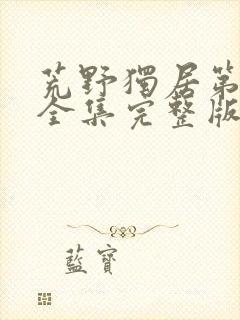 荒野獨居第
全集完整版
藍寶